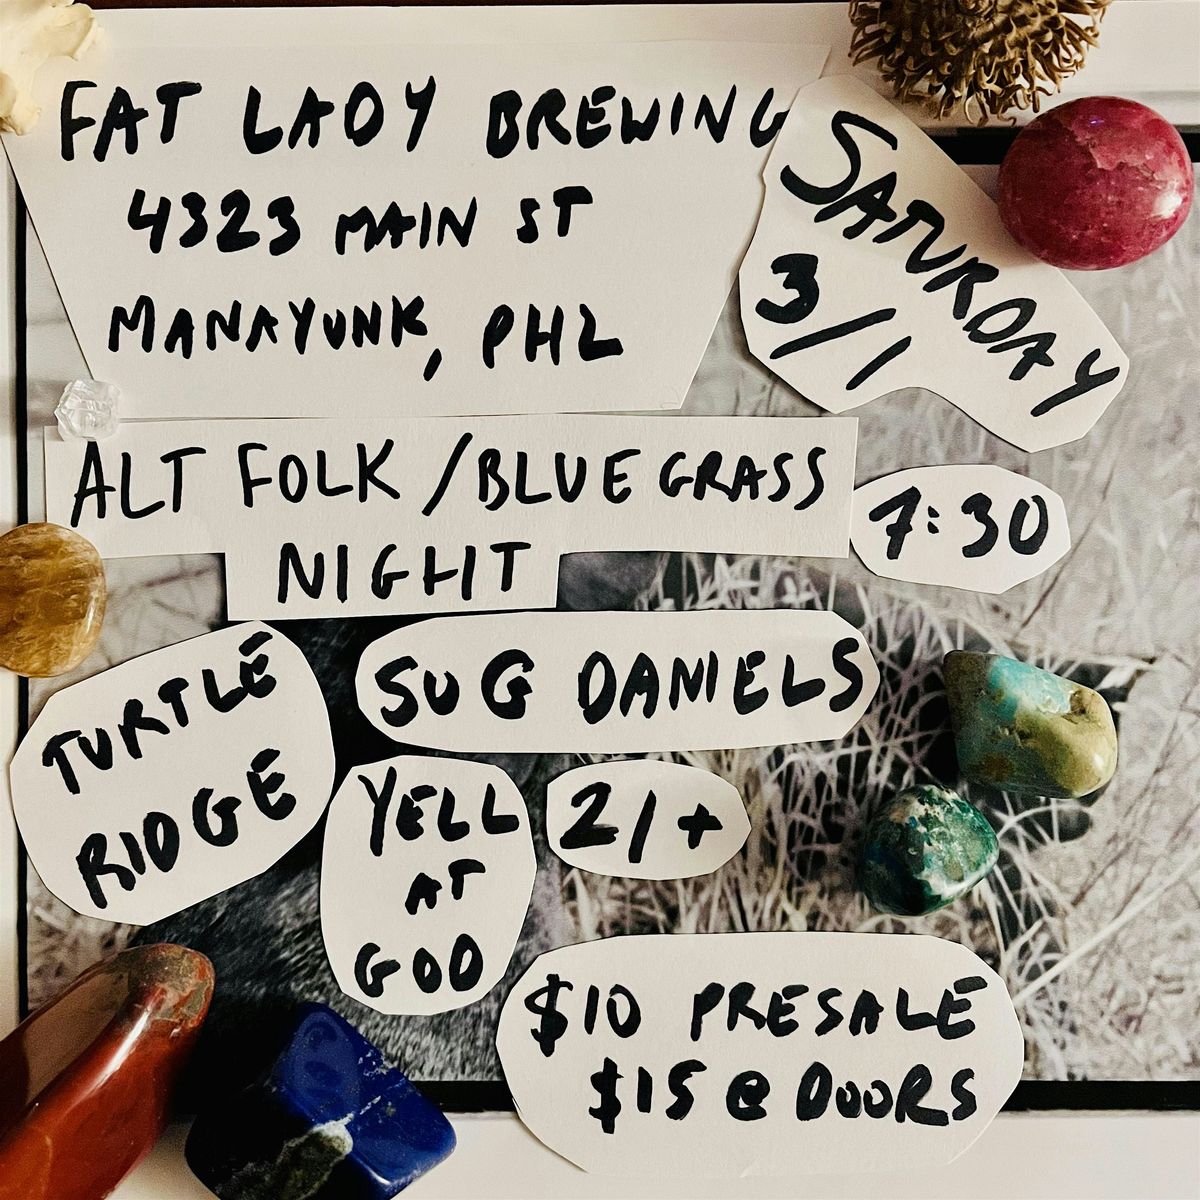 FAT LADY BREWING
4323 MAIN ST
MANAYUNK, PHL
SATURDAY
3/1
ALT FOLK/BLUEGRASS
NIGHT
7:30
TURTLE
RIDGE
SUG DANIELS
YELL
AT
GOD
21+
$10 PRESALE
$15 @ DOORS